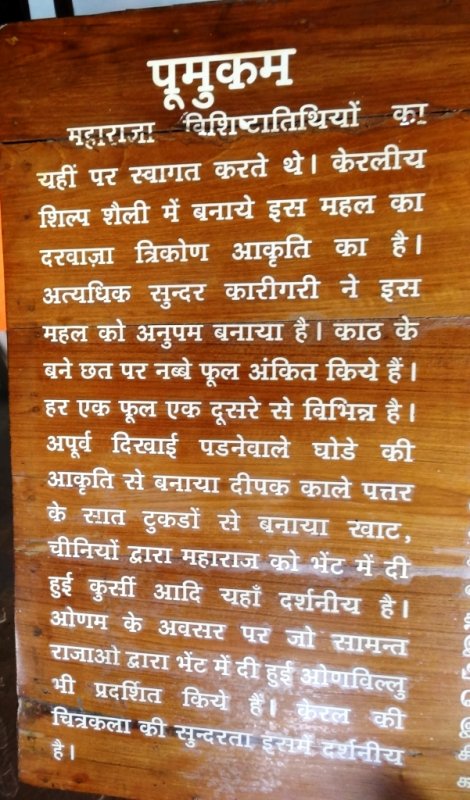 पूमुकम
महाराजा विशिष्टातिथियों का
यहीं पर स्वागत करते थे। केरलीय
शिल्प शैली में बनाये इस महल का
दरवाज़ा त्रिकोण आकृति का है।
अत्यधिक सुन्दर कारीगरी ने इस
महल को अनुपम बनाया है। काठ के
बने छत पर नब्बे फूल अंकित किये हैं।
हर एक फूल एक दूसरे से विभिन्न है।
अपूर्व दिखाई पडनेवाले घोडे की
आकृति से बनाया दीपक काले पत्तर
के सात टुकडों से बनाया खाट,
चीनियों द्वारा महाराज को भेंट में दी
हुई कुर्सी आदि यहाँ दर्शनीय है।
ओणम के अवसर पर जो सामन्त
राजाओ द्वारा भेंट में दी हुई ओणविल्लु
भी प्रदर्शित किये हैं। केरल की
चित्रकला की सुन्दरता इसमें दर्शनीय
है।